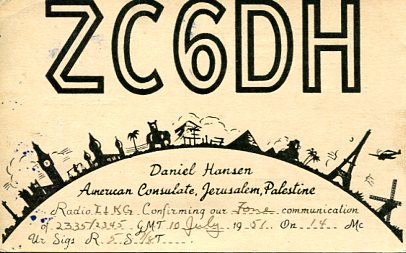 ZC6DH
Daniel Hansen
American Consulate, Jerusalem, Palestine
Radio I1KG Confirming our Fone communication
of 2335/2345 GMT 10 July 1951. On 14 Mc
Ur Sigs R 5 S 7/8 T